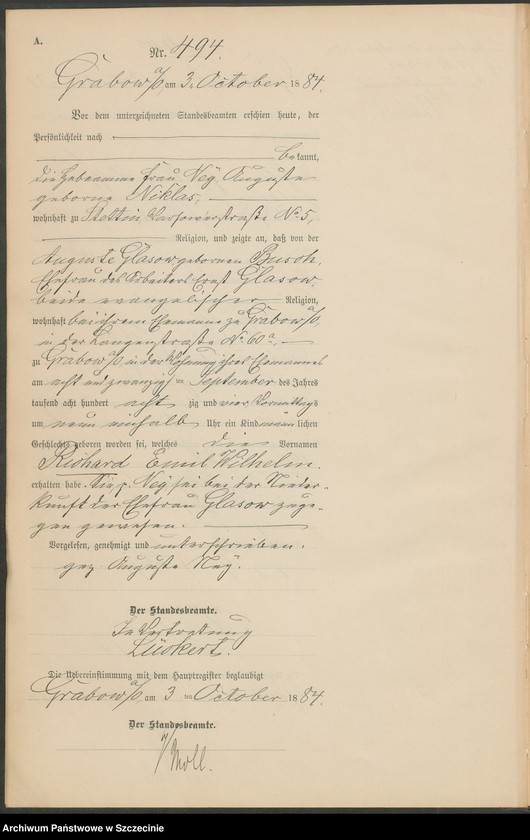 A.
Nr. 494.
Grabow a/O, am 3. October 1884.
Vor dem unterzeichneten Standesbeamten erschien heute, der
Persönlichkeit nach
bekannt,
die Hebeamme Frau Ney Auguste
geborne Niklas,
wohnhaft zu Stettin, Warsowerstraße No 5,
Religion, und zeigte an, daß von der
Auguste Glasow gebornen Busch,
Ehefrau des Arbeiters Ernst Glasow,
beide evangelischer Religion,
wohnhaft bei ihrem Ehemanne zu Grabow a/O,
in der Langenstraße No 60a,
zu Grabow a/O, in der Wohnung ihres Ehemannes
am acht und zwanzigsten September des Jahres
tausend acht hundert achtzig und vier, Vormittags
um neun einhalb Uhr ein Kind männlichen
Geschlechts geboren worden sei, welches die Vornamen
Richard Emil Wilhelm
erhalten habe. Die p. Ney sei bei der Nieder-
kunft der Ehefrau Glasow zuge-
gen gewesen.
Vorgelesen, genehmigt und unterschrieben.
gez. Auguste Ney.
Der Standesbeamte.
In Vertretung
Lückert.
Die Uebereinstimmung mit dem Hauptregister beglaubigt
Grabow a/O, am 3ten October 1884.
Der Standesbeamte.
Moll.
Archiwum Państwowe w Szczecinie